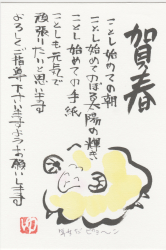 賀春
ことし始めての朝
ことし始めてのぼる太陽の輝き
ことし始めての手紙
ことしも元気で
頑張りたいと思います
よろしくご指導下さいますようお願いします